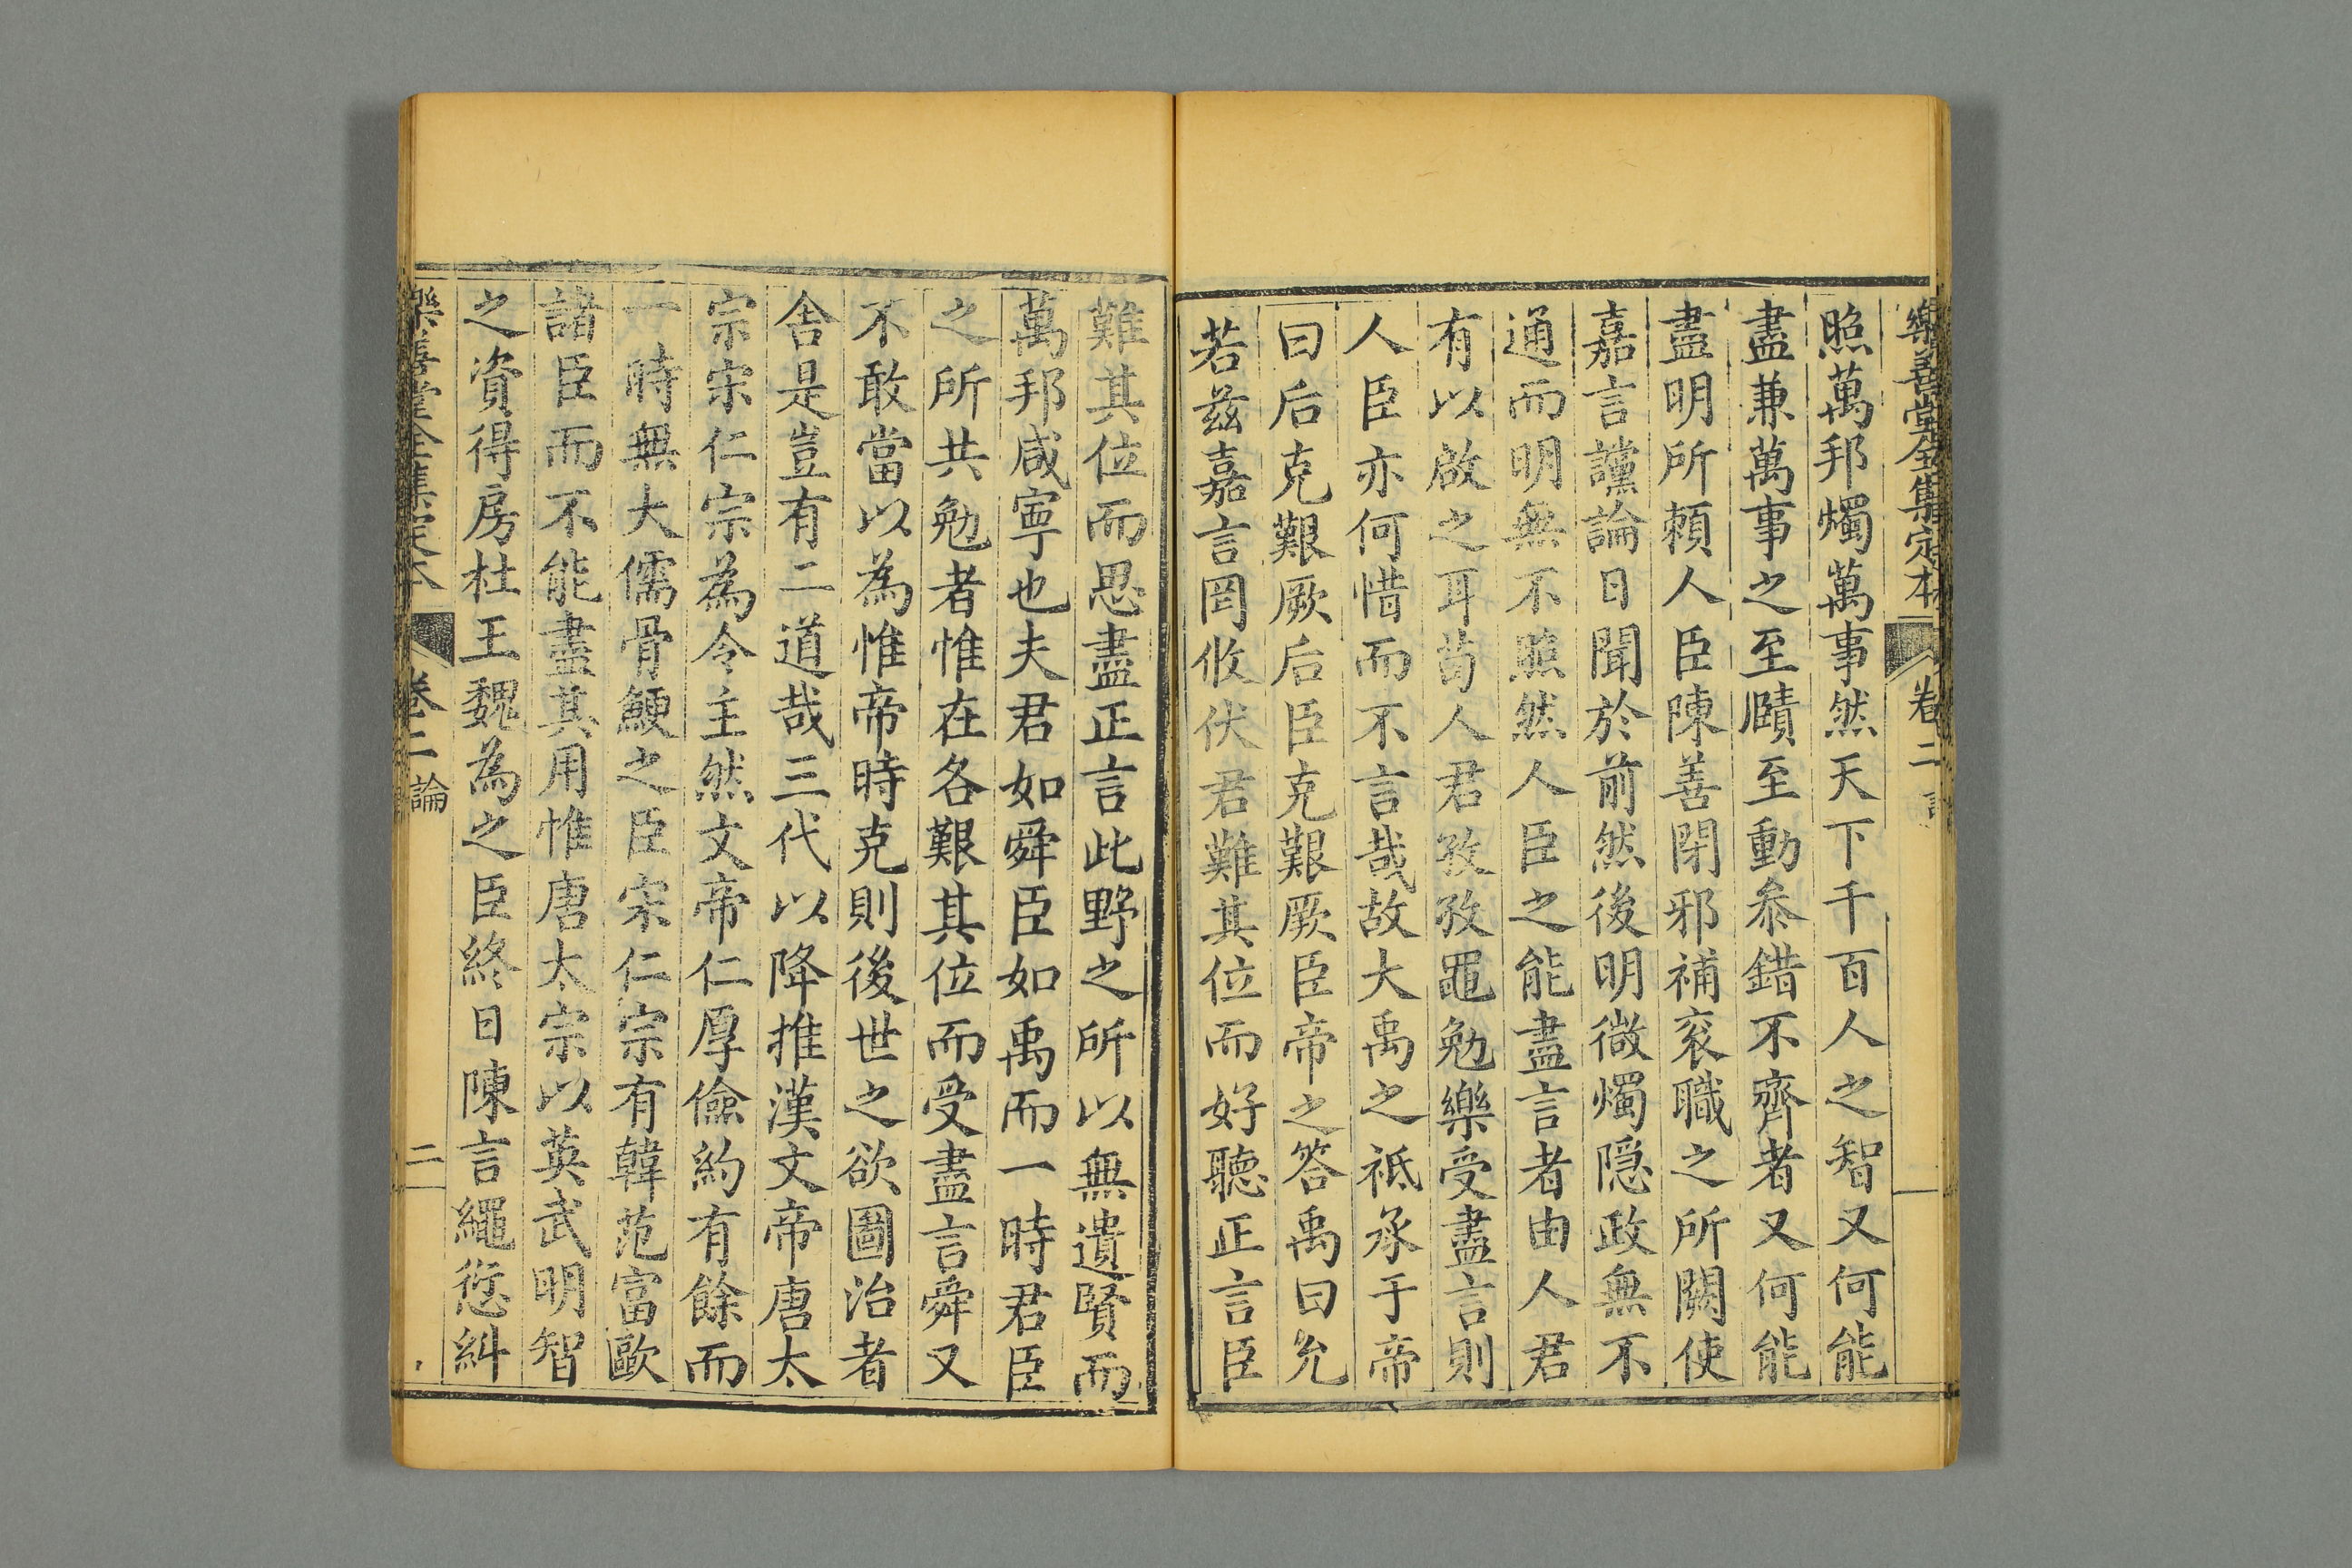 樂善堂全集定本 卷二
照萬邦燭萬事然天下千百人之智又何能
盡兼萬事之至賾至動叅錯不齊者又何能
盡明所頼人臣陳善閉邪補衮職之所闕使
嘉言讜論日聞於前然後明微燭隱政無不
通而明無不照然人臣之能盡言者由人君
有以啟之耳茍人君孜孜黽勉樂受盡言則
人臣亦何惜而不言哉故大禹之祗承于帝
曰后克艱厥后臣克艱厥臣帝之答禹曰允
若兹嘉言罔攸伏君難其位而好聽正言臣
難其位而思盡正言此野之所以無遺賢而
萬邦咸寧也夫君如舜臣如禹而一時君臣
之所共勉者惟在各艱其位而受盡言舜又
不敢當以為惟帝時克則後世之欲圖治者
舍是豈有二道哉三代以降推漢文帝唐太
宗宋仁宗為令主然文帝仁厚儉約有餘而
一時無大儒骨鯁之臣宋仁宗有韓范富歐
諸臣而不能盡其用惟唐太宗以英武明智
之資得房杜王魏為之臣終日陳言繩愆糾
樂善堂全集定本 卷二 論 二